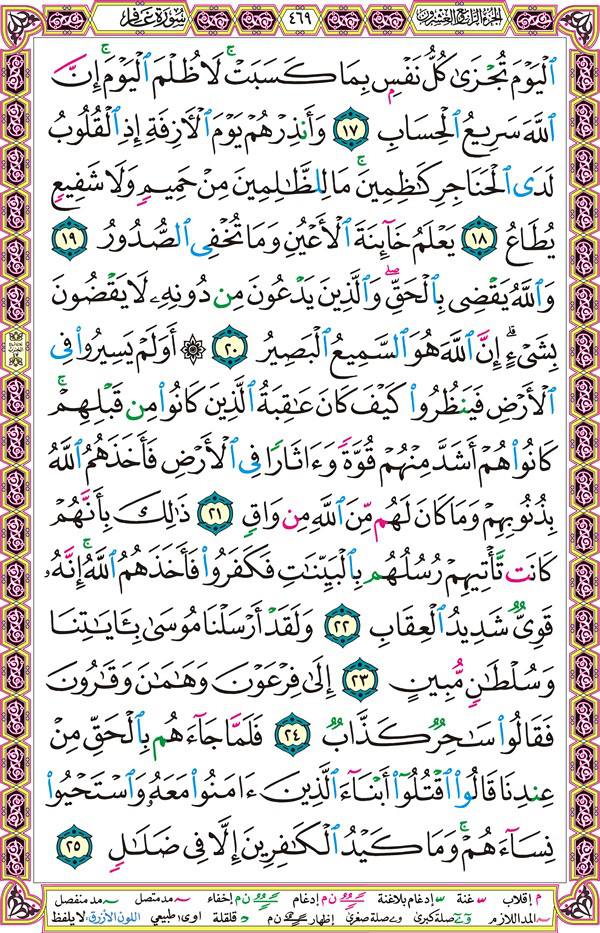 الجزء الرابع والعشرون
٤٦٩
سورة غافر
ٱلْيَوْمَ تُجْزَىٰ كُلُّ نَفْسٍۭ بِمَا كَسَبَتْ ۚ لَا ظُلْمَ ٱلْيَوْمَ ۚ إِنَّ
ٱللَّهَ سَرِيعُ ٱلْحِسَابِ ١٧ وَأَنذِرْهُمْ يَوْمَ ٱلْأَزِفَةِ إِذِ ٱلْقُلُوبُ
لَدَى ٱلْحَنَاجِرِ كَٰظِمِينَ ۚ مَا لِلظَّٰلِمِينَ مِنْ حَمِيمٍ وَلَا شَفِيعٍ
يُطَاعُ ١٨ يَعْلَمُ خَآئِنَةَ ٱلْأَعْيُنِ وَمَا تُخْفِى ٱلصُّدُورُ ١٩
وَٱللَّهُ يَقْضِى بِٱلْحَقِّ ۖ وَٱلَّذِينَ يَدْعُونَ مِن دُونِهِۦ لَا يَقْضُونَ
بِشَىْءٍ ۗ إِنَّ ٱللَّهَ هُوَ ٱلسَّمِيعُ ٱلْبَصِيرُ ٢٠ ۞ أَوَلَمْ يَسِيرُوا۟ فِى
ٱلْأَرْضِ فَيَنظُرُوا۟ كَيْفَ كَانَ عَٰقِبَةُ ٱلَّذِينَ كَانُوا۟ مِن قَبْلِهِمْ ۚ
كَانُوا۟ هُمْ أَشَدَّ مِنْهُمْ قُوَّةً وَءَاثَارًا فِى ٱلْأَرْضِ فَأَخَذَهُمُ ٱللَّهُ
بِذُنُوبِهِمْ وَمَا كَانَ لَهُم مِّنَ ٱللَّهِ مِن وَاقٍ ٢١ ذَٰلِكَ بِأَنَّهُمْ
كَانَت تَّأْتِيهِمْ رُسُلُهُم بِٱلْبَيِّنَٰتِ فَكَفَرُوا۟ فَأَخَذَهُمُ ٱللَّهُ ۚ إِنَّهُۥ
قَوِىٌّ شَدِيدُ ٱلْعِقَابِ ٢٢ وَلَقَدْ أَرْسَلْنَا مُوسَىٰ بِـَٔايَٰتِنَا
وَسُلْطَٰنٍ مُّبِينٍ ٢٣ إِلَىٰ فِرْعَوْنَ وَهَٰمَٰنَ وَقَٰرُونَ
فَقَالُوا۟ سَٰحِرٌ كَذَّابٌ ٢٤ فَلَمَّا جَآءَهُم بِٱلْحَقِّ مِنْ
عِندِنَا قَالُوا۟ ٱقْتُلُوٓا۟ أَبْنَآءَ ٱلَّذِينَ ءَامَنُوا۟ مَعَهُۥ وَٱسْتَحْيُوا۟
نِسَآءَهُمْ ۚ وَمَا كَيْدُ ٱلْكَٰفِرِينَ إِلَّا فِى ضَلَٰلٍ ٢٥
م إقلاب غنة إدغام بلاغنة ن م إدغام ن م إخفاء مد متصل مد منفصل
المد اللازم صلة كبرى صلة صغرى إظهار ن م قلقلة اوى؛ طبيعي اللون الأزرق؛ لا يلفظ